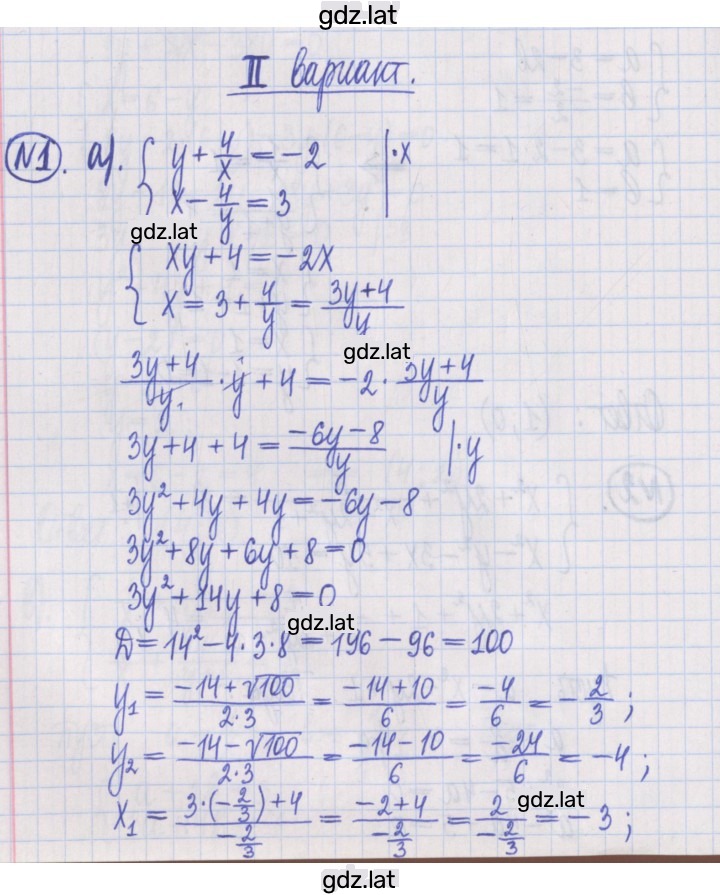 gdz.lat
II вариант.
№1. а). { y + 4/x = -2 | ·x
x - 4/y = 3
gdz.lat
{ xy + 4 = -2x
x = 3 + 4/y = (3y+4)/y
gdz.lat
(3y+4)/y · y + 4 = -2 · (3y+4)/y
3y + 4 + 4 = (-6y-8)/y | ·y
3y² + 4y + 4y = -6y - 8
3y² + 8y + 6y + 8 = 0
3y² + 14y + 8 = 0
gdz.lat
D = 14² - 4·3·8 = 196 - 96 = 100
y₁ = (-14+√100)/(2·3) = (-14+10)/6 = -4/6 = -2/3 ;
y₂ = (-14-√100)/(2·3) = (-14-10)/6 = -24/6 = -4 ;
gdz.lat
x₁ = (3·(-2/3)+4)/(-2/3) = (-2+4)/(-2/3) = 2/(-2/3) = -3 ;
gdz.lat